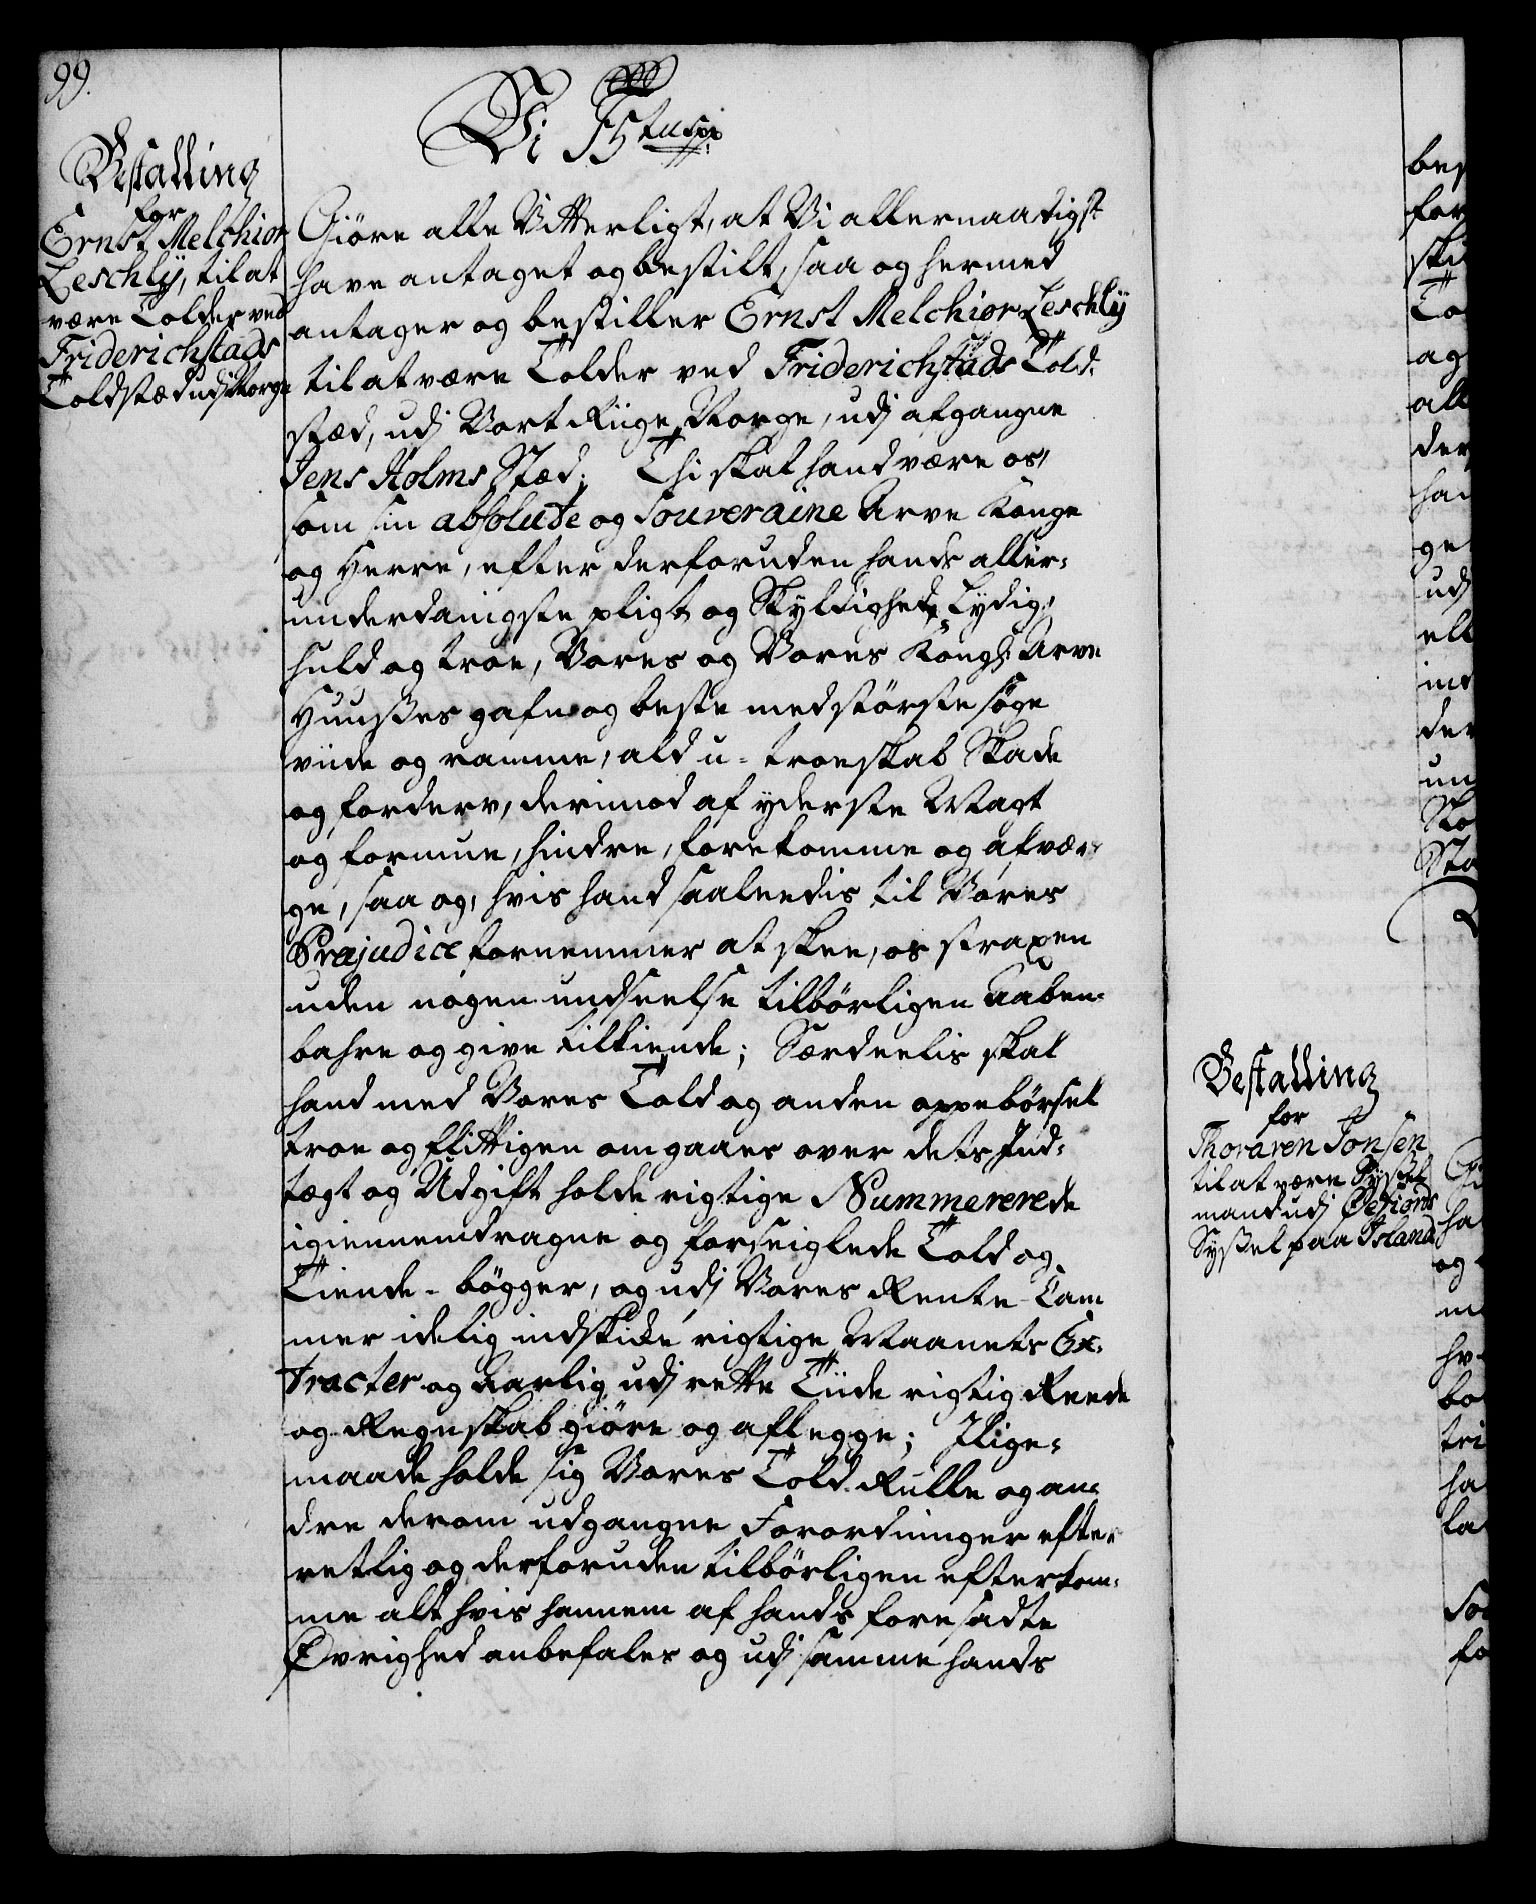 99.
Bestalling
for
Ernst Melchior
Leschlÿ, til at
være Tolder ved
Friderichstads
Toldstæd udj Norge
Vi F 5tus pp:
Giöre alle Vitterligt, at Vi allernaadigst
have antaget og bestilt, saa og hermed
antager og bestiller Ernst Melchior Leschlÿ
til at være Tolder ved Friderichstads Told-
stæd, udj Vort Riige Norge, udj afgangne
Jens Holms Stæd. Thi skal hand være os,
som sin absolute og Souveraine Arve Konge
og Herre, efter derforuden hands aller-
underdanigste pligt og Skyldighed, Lydig,
huld og troe, Vores og Vores Kongl: Arve
Huußes gafn og beste med störste söge
viide og ramme, ald u-troeskab Skade
og forderv, derimod af yderste Magt
og formue, hindre, forekomme og afvær-
ge, saa og, hvis hand saaleedis til Vores
Præjudice fornemmer at skee, os straxen
uden nogen undseelse tilbörligen aaben-
bahre og give tilkiende; Særdeelis skal
hand med Vores Told og anden oppebörsel
troe og flittigen omgaaes over dets Ind-
tægt og Udgift holde rigtige Nummererede
igiennemdragne og forseiglede Told og
Tiende-bögger, og udj Vores Rente-Cam
mer idelig indskicke rigtige Maanets Ex-
tracter og Aarlig udj rette Tiide rigtig Reede
og Regnskab giöre og aflegge; Ilige-
maade holde sig Vores Told-Rulle og an-
dre derom udgangne Forordninger efter
retlig og derforuden tilbörligen efterkom-
me alt hvis hannem af hands foresadte
Övrighed anbefales og udj samme hands
Bestalling
for
Thoraren Jonsen
til at være Syssel
mand udj
Syßel paa Island